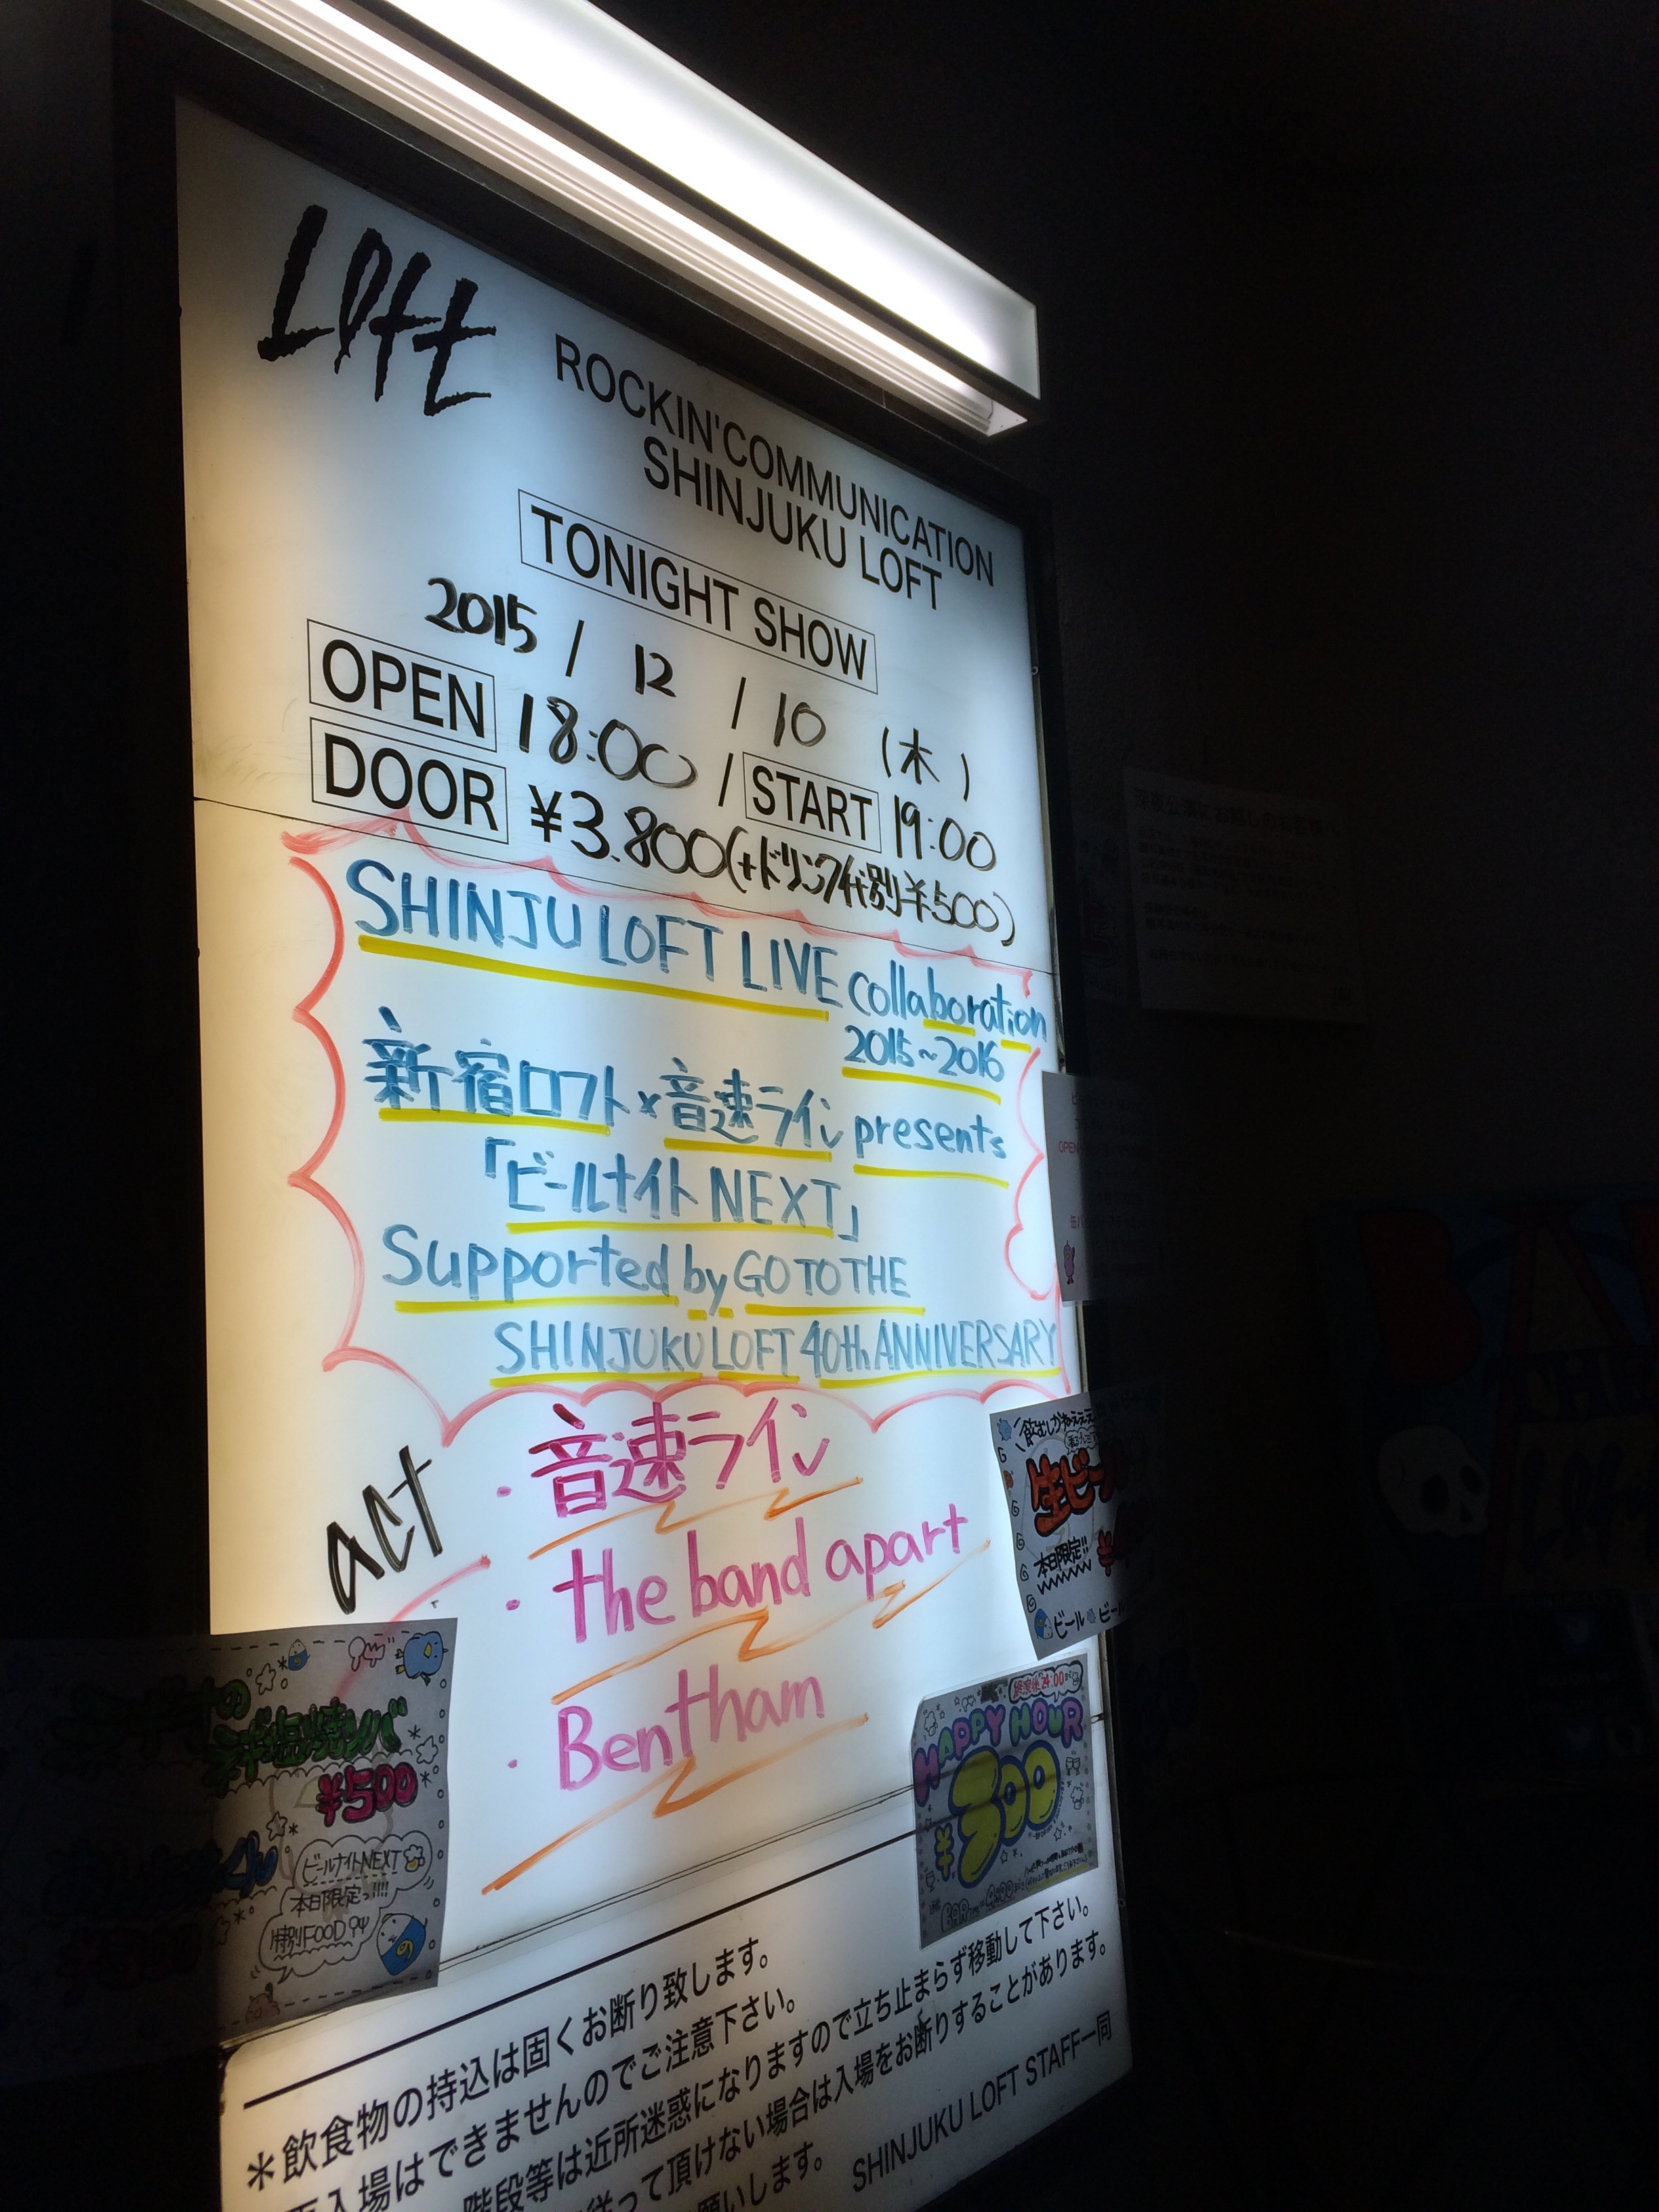 LOFT
ROCKIN'COMMUNICATION
SHINJUKU LOFT
TONIGHT SHOW
2015 / 12 / 10 (木)
OPEN 18:00 / START 19:00
DOOR ¥3.800(+ドリンク代別¥500)
SHINJU LOFT LIVE collaboration
2015~2016
新宿ロフト×音速ライン presents
「ビールナイト NEXT」
Supported by GO TO THE
SHINJUKU LOFT 40th ANNIVERSARY
act
・音速ライン
・the band apart
・Bentham
生ビール
本日限定!!
ビール
ネギ塩焼ソバ
¥500
ビールナイトNEXT
本日限定っ!!!!
特別FOOD
終演後24:00
HAPPY HOUR
¥300
BAR
＊飲食物の持込は固くお断り致します。
入場はできませんのでご注意下さい。
階段等は近所迷惑になりますので立ち止まらず移動して下さい。
従って頂けない場合は入場をお断りすることがあります。
願いします。
SHINJUKU LOFT STAFF一同